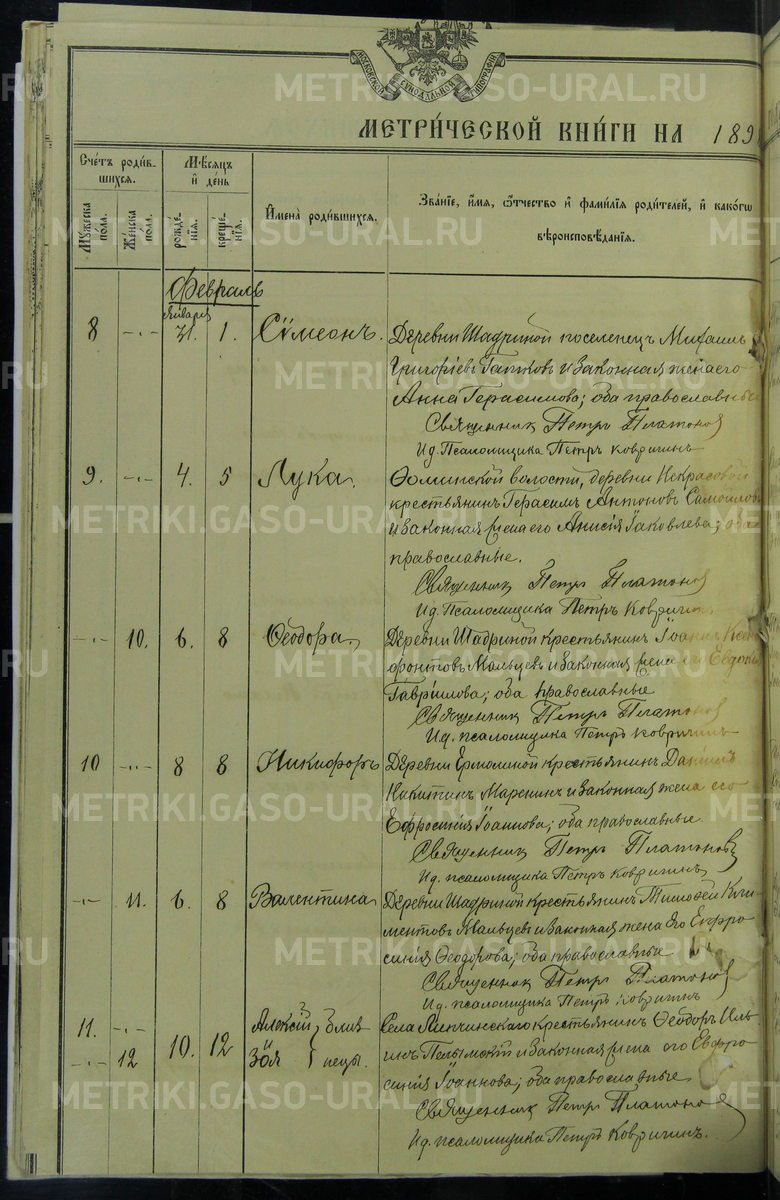 МОСКОВСКОЙ СѴНОДАЛЬНОЙ ТИПОГРАФІИ
МЕТРИ́ЧЕСКОЙ КНИ́ГИ НА 189
Сче́тъ роди́в-
шихся.
Му́жеска по́ла.
Же́нска по́ла.
Мѣ́сяцъ
и҆ де́нь
рожде́нїя.
креще́нїя.
И҆мена̀ роди́вшихся.
Зва́нїе, и҆́мя, ѻ҆́тчество и҆ фами́лїя роди́телей, и҆ како́гѡ
вѣроисповѣ́данїя.
Февраль
8 -"- Января 31. 1. Сѵмеонъ. Деревни Шадриной поселенецъ Михаилъ
Григоріевъ и законная жена его
Анна Герасимова; оба православные
Священник Петръ Платонов
И.д. Псаломщика Петръ Ковригинъ
9. -"- 4. 5 Лука. Ѳоминской волости, деревни Некрасовой
крестьянинъ Герасимъ Антоновъ Самойлов
и законная жена его Анисія Іаковлева; оба
православные.
Священник Петръ Платонов
И.д. Псаломщика Петръ Ковригин
-"- 10. 6. 8 Ѳеодора. Деревни Шадриной крестьянинъ Іоаннъ Ксен
офонтовъ Мальцевъ и законная жена его Евдокі
Гавріилова; оба православные
Священник Петръ Платонов
И.д. псаломщика Петръ Ковригинъ
10 -"- 8 8 Никифоръ Деревни Ермолиной крестьянинъ Даніилъ
Никитинъ и законная жена его
Ефросинія Іоаннова; оба православные
Священник Петръ Платоновъ
И.д. псаломщика Петръ Ковригинъ
-"- 11. 6. 8 Валентина Деревни Шадриной крестьянинъ Тимоѳей Кли
ментовъ Мальцевъ и законная жена его Ефро
синія Ѳеодорова; оба православные
Священник Петръ Платонов
И.д. псаломщика Петръ Ковригинъ
11. -"- 10. 12 Алексій } близ Села Липчинскаго крестьянинъ Ѳеодоръ Иль
-"- 12 Зоя } нецы. инъ Пелымскій и законная жена его Евфро
синія Іоаннова; оба православные
Священник Петръ Платонов
И.д. псаломщика Петръ Ковригинъ.
METRIKI.GASO-URAL.RU